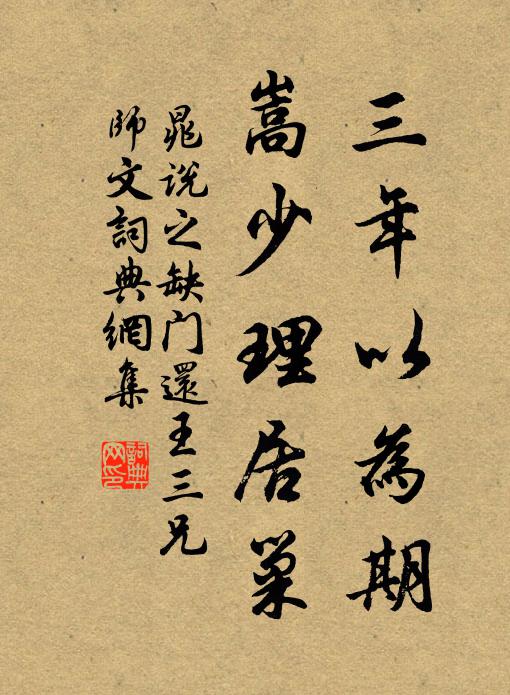 三年以為期
嵩少理居巢
晁说之缺门還王三兄
師文詞典網集
詞典
网印